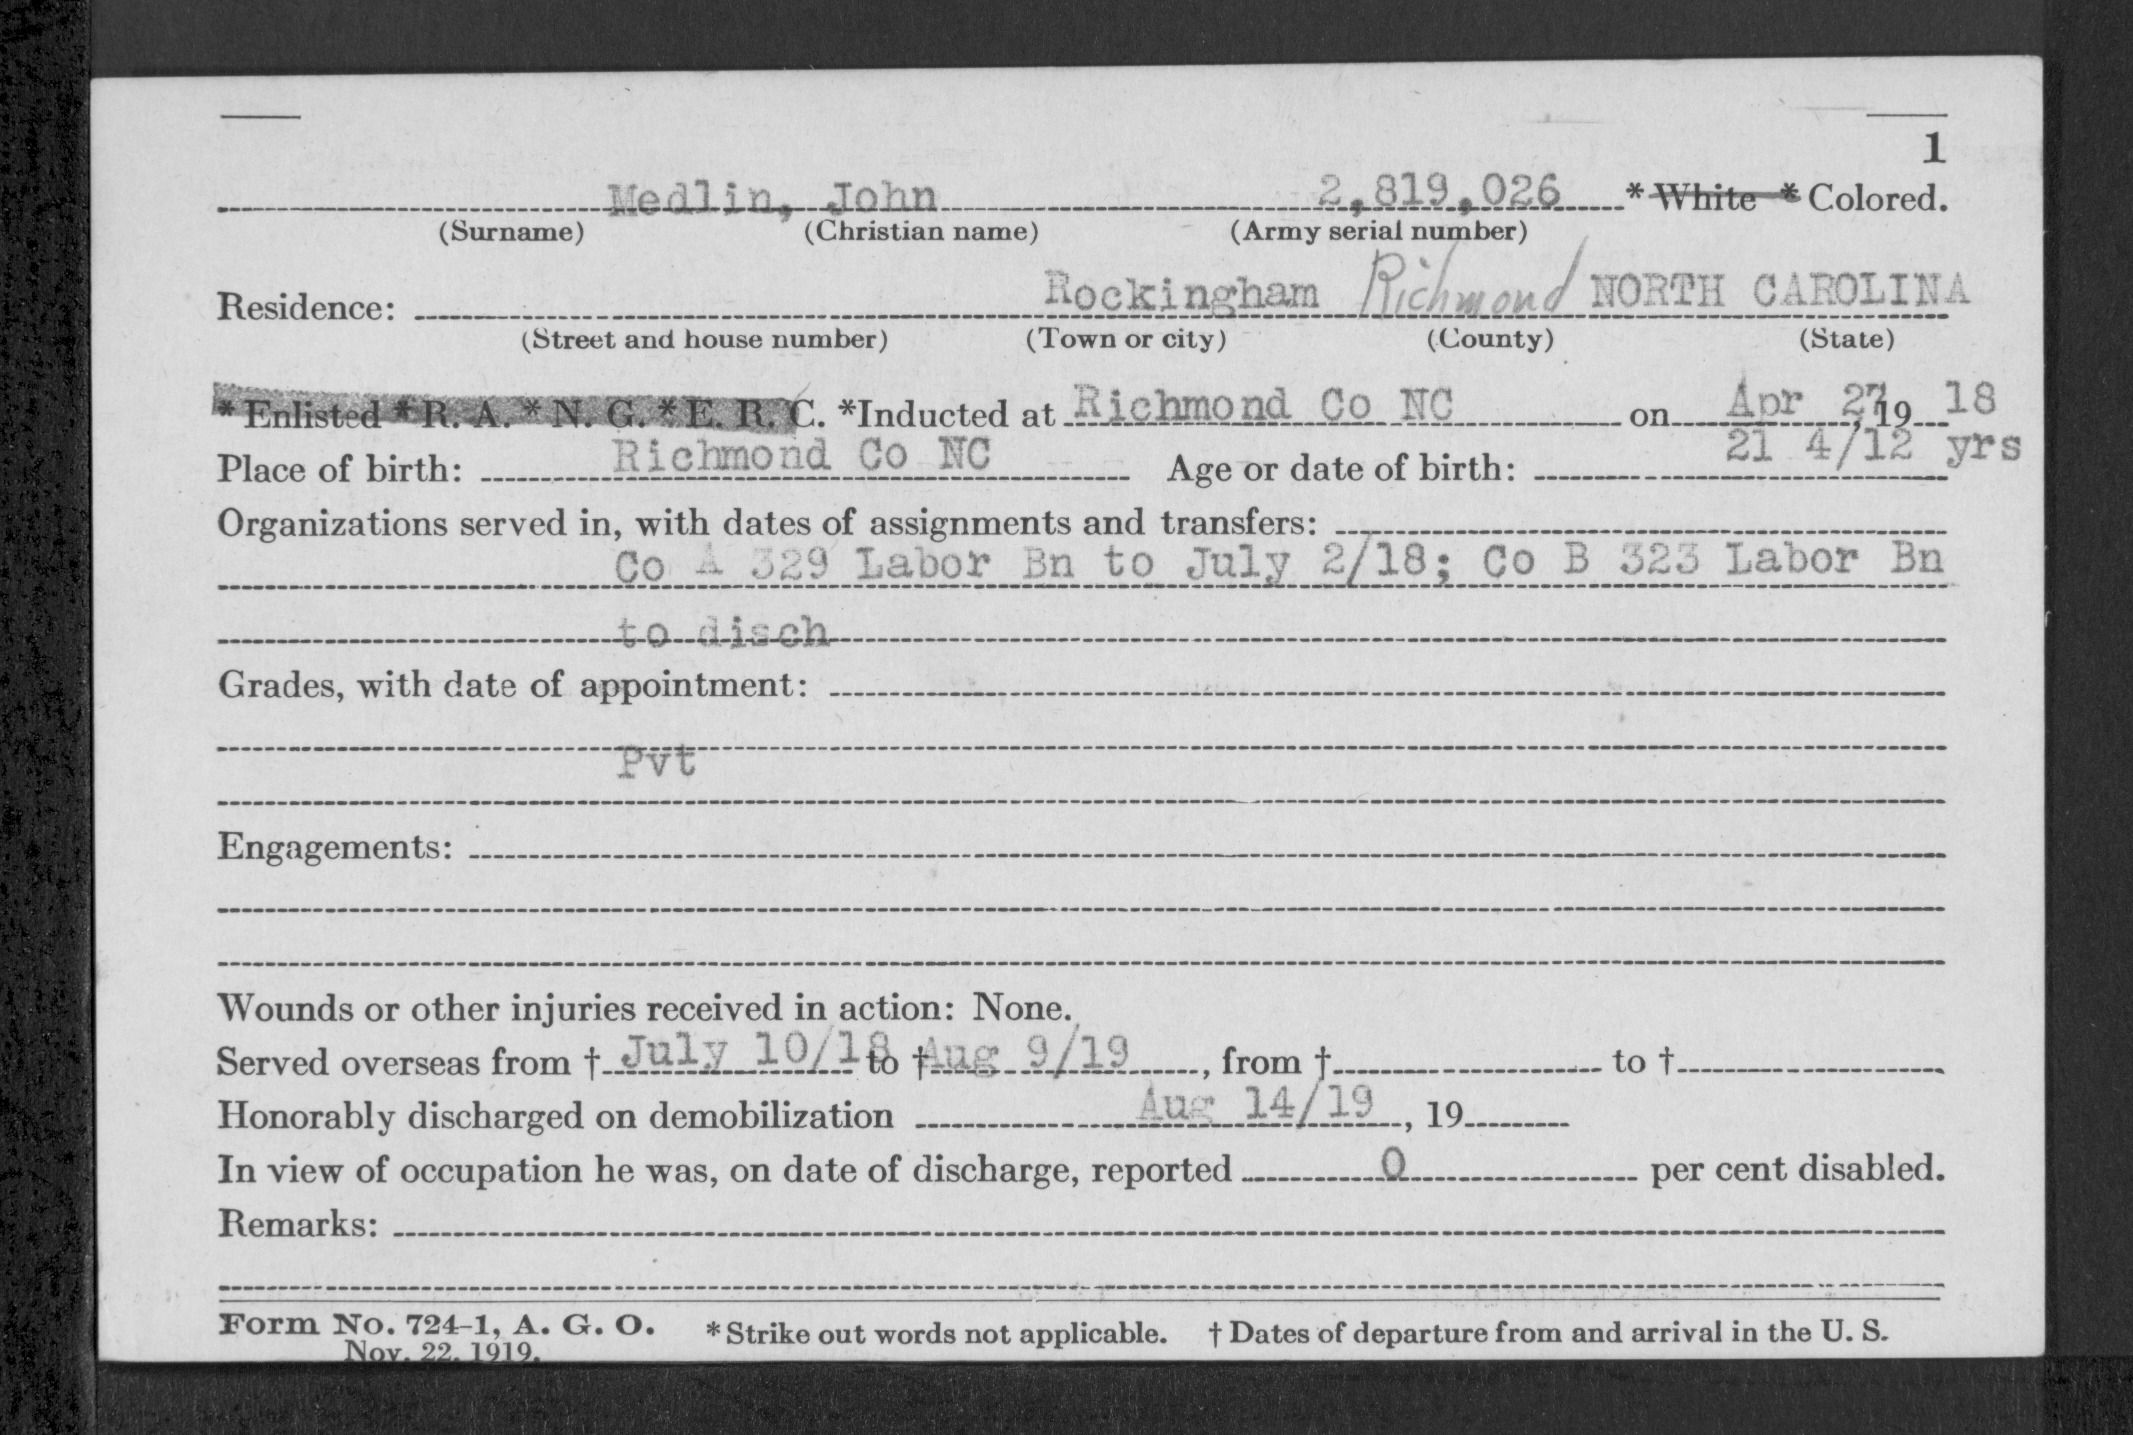 1
Medlin, John 2,819,026 * White * Colored.
(Surname) (Christian name) (Army serial number)
Residence: Rockingham Richmond NORTH CAROLINA
(Street and house number) (Town or city) (County) (State)
* Enlisted * R. A. * N. G. * E. R. C. *Inducted at Richmond Co NC on Apr 27, 19 18
Place of birth: Richmond Co NC Age or date of birth: 21 4/12 yrs
Organizations served in, with dates of assignments and transfers:
Co A 329 Labor Bn to July 2/18; Co B 323 Labor Bn
to disch
Grades, with date of appointment:
Pvt
Engagements:
Wounds or other injuries received in action: None.
Served overseas from † July 10/18 to † Aug 9/19, from † to †
Honorably discharged on demobilization Aug 14/19, 19
In view of occupation he was, on date of discharge, reported 0 per cent disabled.
Remarks:
Form No. 724-1, A. G. O. * Strike out words not applicable. † Dates of departure from and arrival in the U. S.
Nov. 22, 1919.